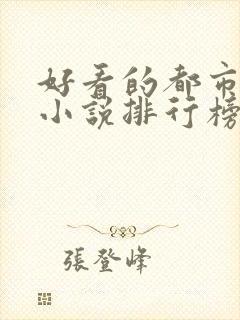 好看的都市
小説排行榜
張登峰